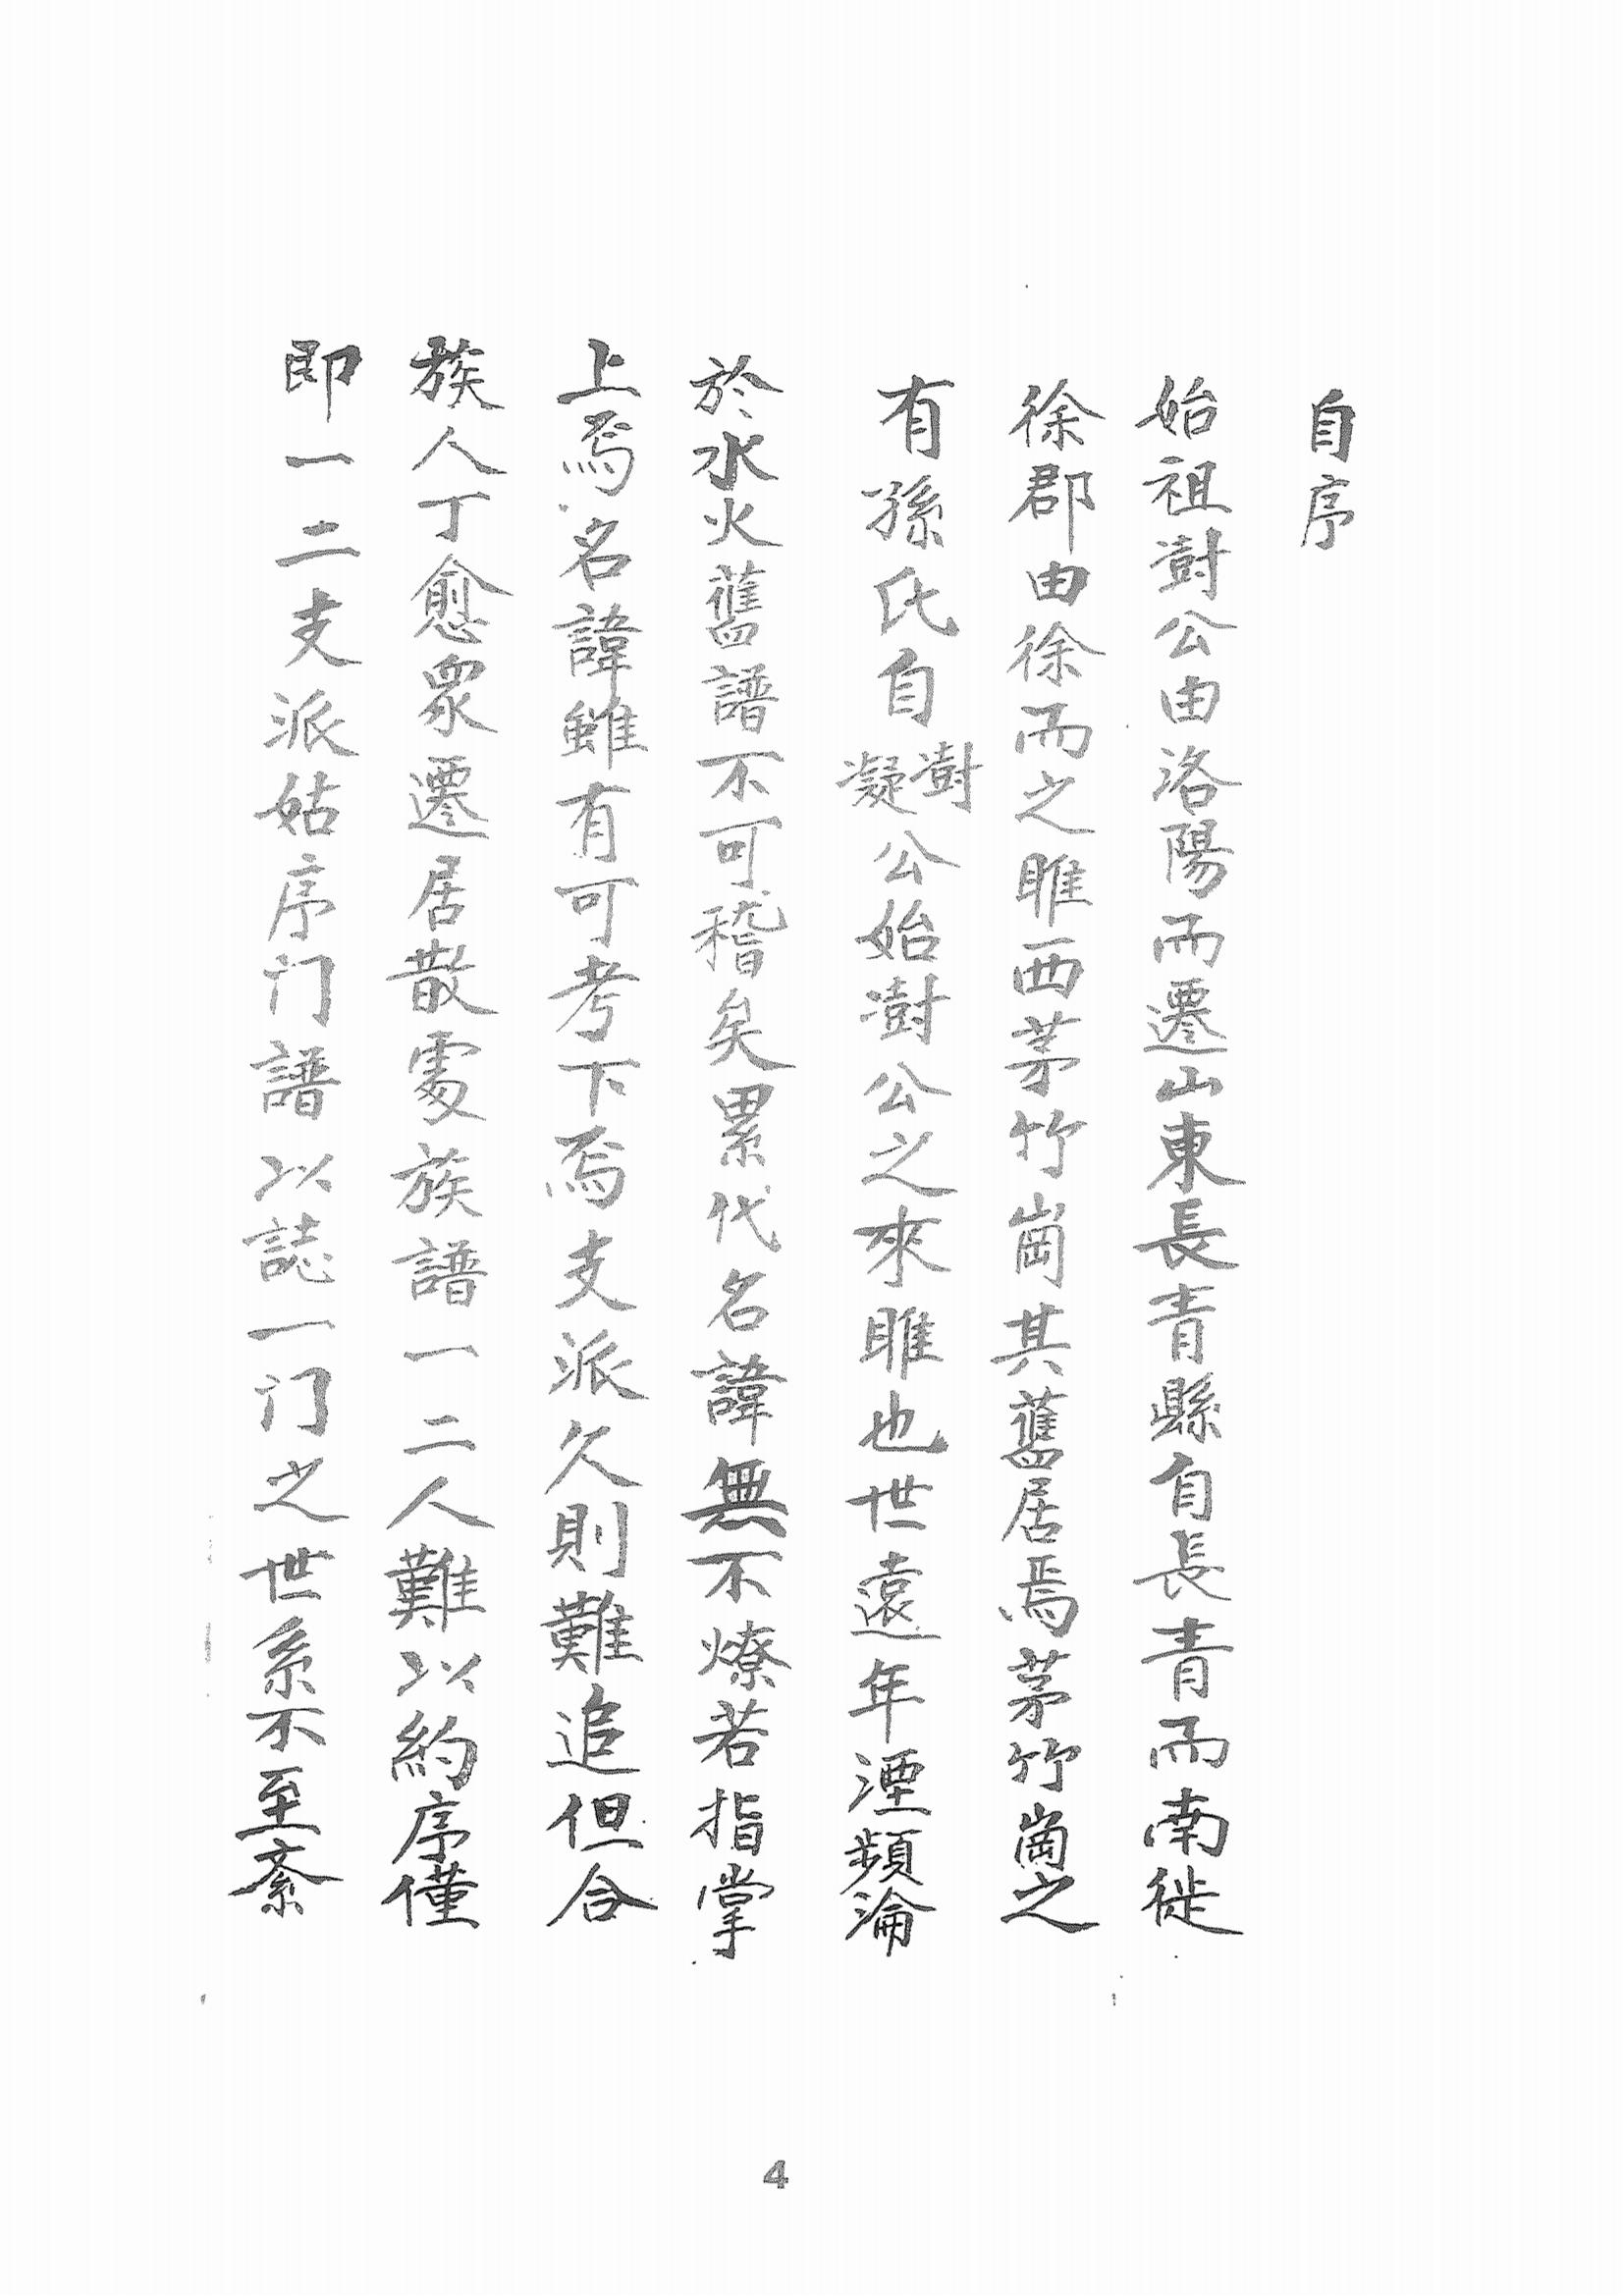 自序
始祖澍公由洛陽而遷山東長青縣自長青而南徙
徐郡由徐而之睢西茅竹崗其舊居焉茅竹崗之
有孫氏自澍凝公始澍公之來睢也世遠年湮頻淪
於水火舊譜不可稽矣累代名諱無不燎若指掌
上焉名諱雖有可考下焉支派久則難追但合
族人丁愈眾遷居散處族譜一二人難以約序僅
即一二支派姑序门譜以誌一门之世系不至紊
4